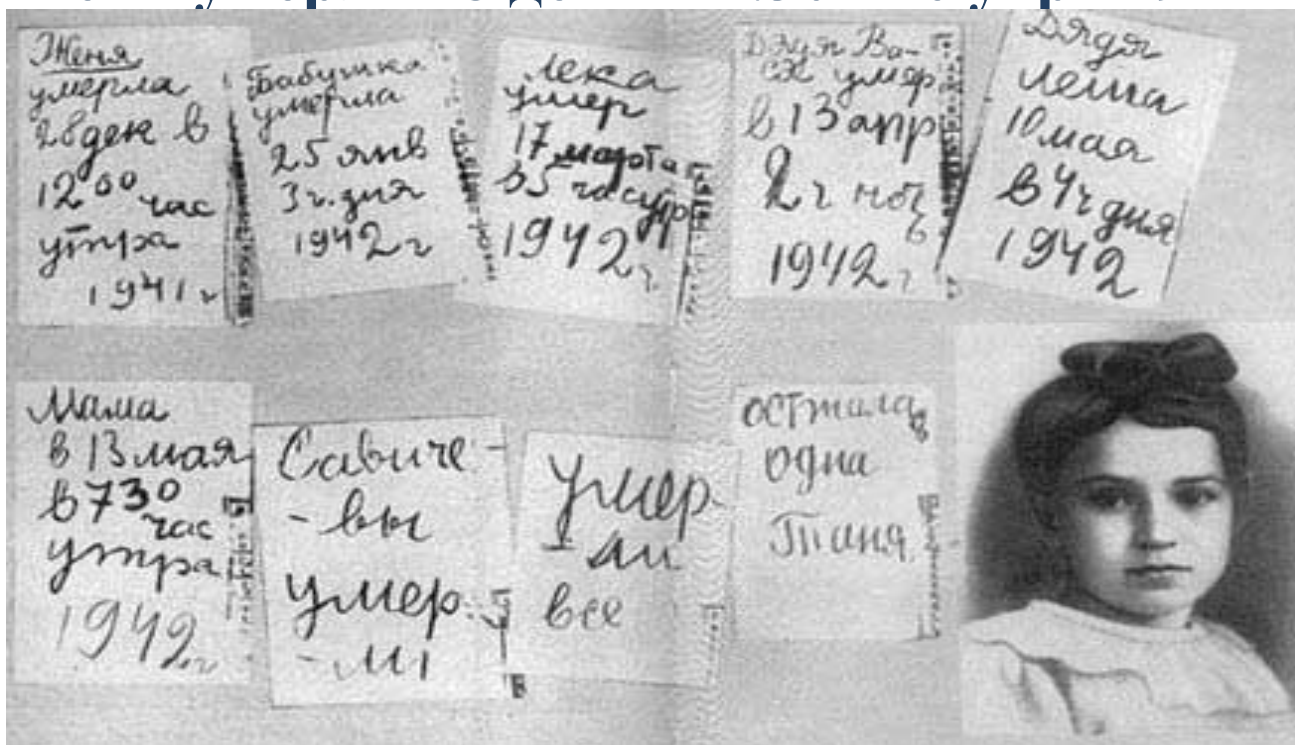 Женя
умерла
28 дек в
12 00 час
утра
1941 г
Бабушка
умерла
25 янв
3 ч. дня
1942 г
Лека
умер
17 марта
в 5 час утр
1942 г
Дядя Ва-
ся умер
в 13 апр
2 ч ночь
1942 г
Дядя
Леша
10 мая
в 4 ч дня
1942
Мама
в 13 мая
в 7 30
час
утра
1942 г
Савиче-
-вы
умер-
-ли
Умер-
-ли
все
Осталась
одна
Таня.